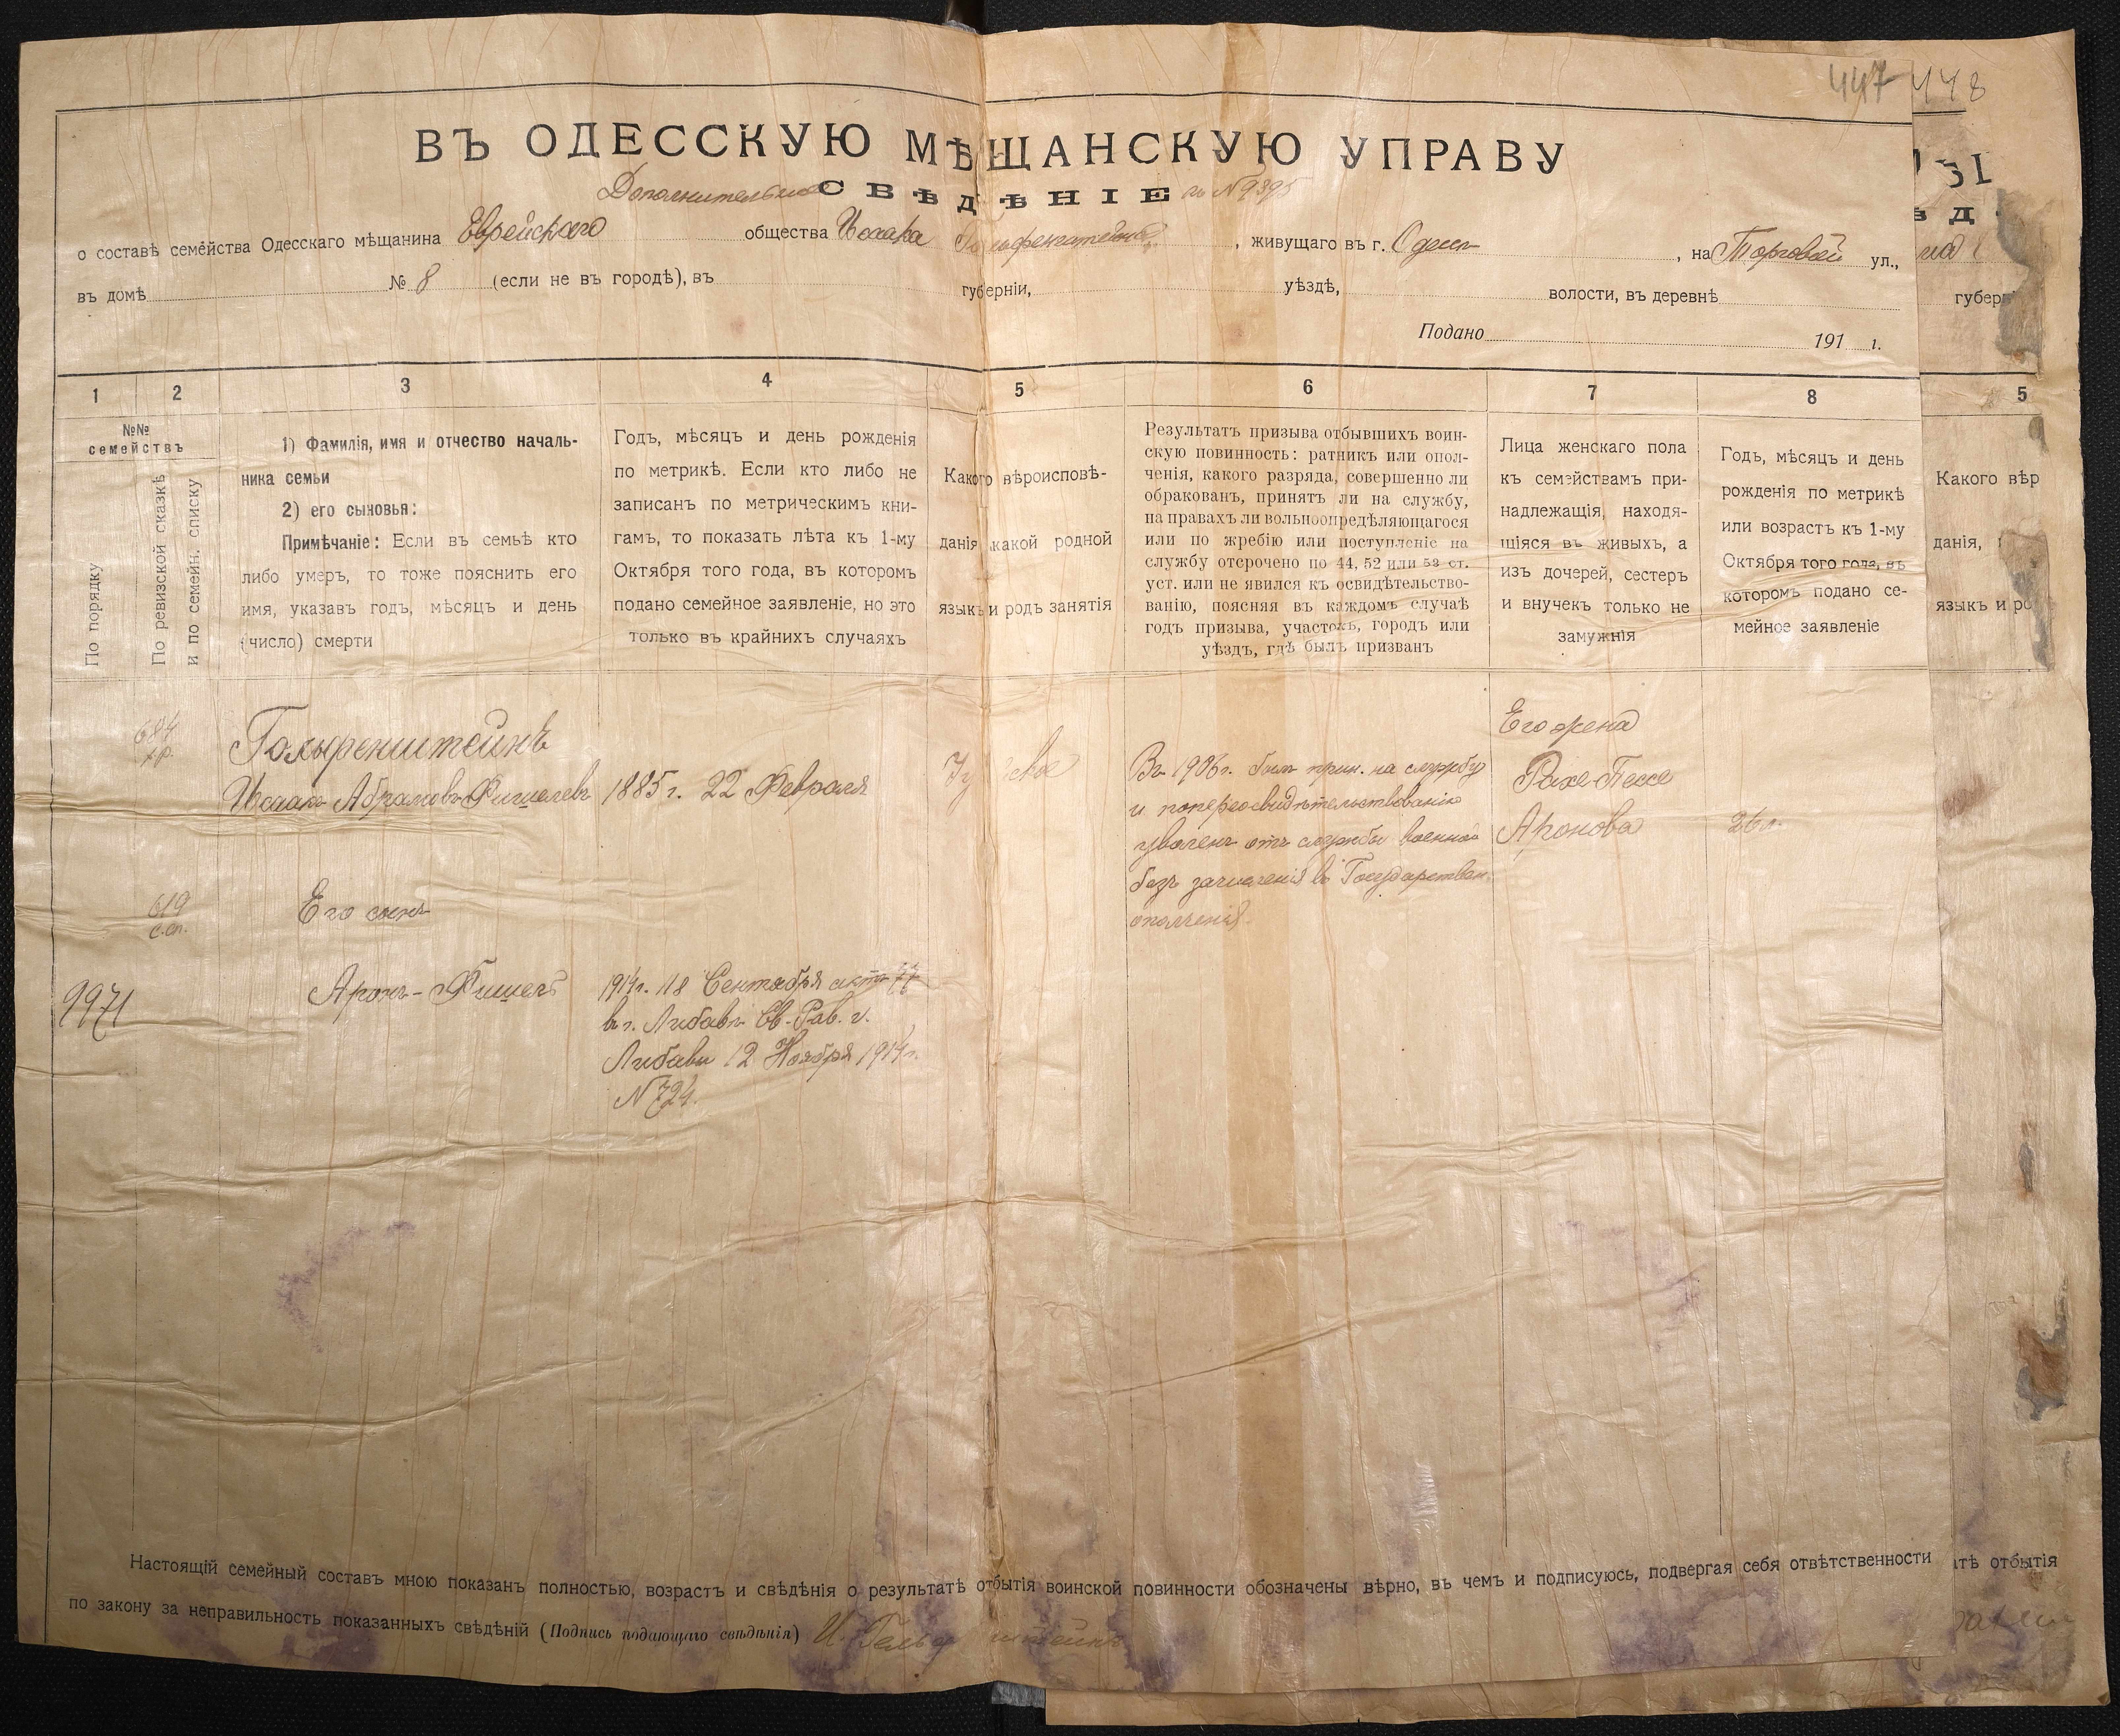 447 448
ВЪ ОДЕССКУЮ МѢЩАНСКУЮ УПРАВУ
Дополнительное СВѢДѢНІЕ къ № 9395
о составѣ семейства Одесскаго мѣщанина Еврейскаго общества Исаака Гольфенштейна, живущаго въ г. Одессѣ, на Торговой ул.,
въ домѣ № 8 (если не въ городѣ), въ губерніи, уѣздѣ, волости, въ деревнѣ
Подано 191 г.
1 2 3 4 5 6 7 8
№№
семействъ
По порядку
По ревизской сказкѣ
и по семейн. списку
1) Фамилія, имя и отчество началь-
ника семьи
2) его сыновья:
Примѣчаніе: Если въ семьѣ кто
либо умеръ, то тоже пояснить его
имя, указавъ годъ, мѣсяцъ и день
(число) смерти
Годъ, мѣсяцъ и день рожденія
по метрикѣ. Если кто либо не
записанъ по метрическимъ кни-
гамъ, то показать лѣта къ 1-му
Октября того года, въ которомъ
подано семейное заявленіе, но это
только въ крайнихъ случаяхъ
Какого вѣроисповѣ-
данія, какой родной
языкъ и родъ занятія
Результатъ призыва отбывшихъ воин-
скую повинность: ратникъ или опол-
ченія, какого разряда, совершенно ли
обракованъ, принятъ ли на службу,
на правахъ ли вольноопредѣляющагося
или по жребію или поступленіе на
службу отсрочено по 44, 52 или 53 ст.
уст. или не явился къ освидѣтельство-
ванію, поясняя въ каждомъ случаѣ
годъ призыва, участокъ, городъ или
уѣздъ, гдѣ былъ призванъ
Лица женскаго пола
къ семействамъ при-
надлежащія, находя-
щіяся въ живыхъ, а
изъ дочерей, сестеръ
и внучекъ только не
замужнія
Годъ, мѣсяцъ и день
рожденія по метрикѣ
или возрастъ къ 1-му
Октября того года, въ
которомъ подано се-
мейное заявленіе
684
Исаакъ Абрамовъ-Фишелевъ
1885 г. 22 Февраля
Въ 1906 г. былъ прин. на службу
и по переосвидѣтельствованію
уволенъ отъ службы военной
безъ зачисленія въ Государствен.
ополченія.
Его жена
Рахе-Песся
Аронова
26 л.
619
с. сп.
Его сынъ
9971
Аронъ-Фишель
1914 г. 18 Сентября актъ
въ г. Либавѣ Св. Рав. г.
Либавы 12 Ноября 1914 г.
№ 724.
Настоящій семейный составъ мною показанъ полностью, возрастъ и свѣдѣнія о результатѣ отбытія воинской повинности обозначены вѣрно, въ чемъ и подписуюсь, подвергая себя отвѣтственности
по закону за неправильность показанныхъ свѣдѣній (Подпись подающаго свѣдѣнія) И.
губерн
5
Какого вѣр
данія,
языкъ и ро
атѣ отбытія